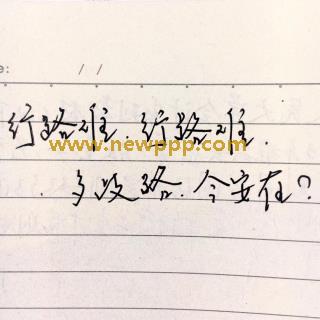 e: / /
行路难.行路难.
www.newppp.com
多歧路.今安在?